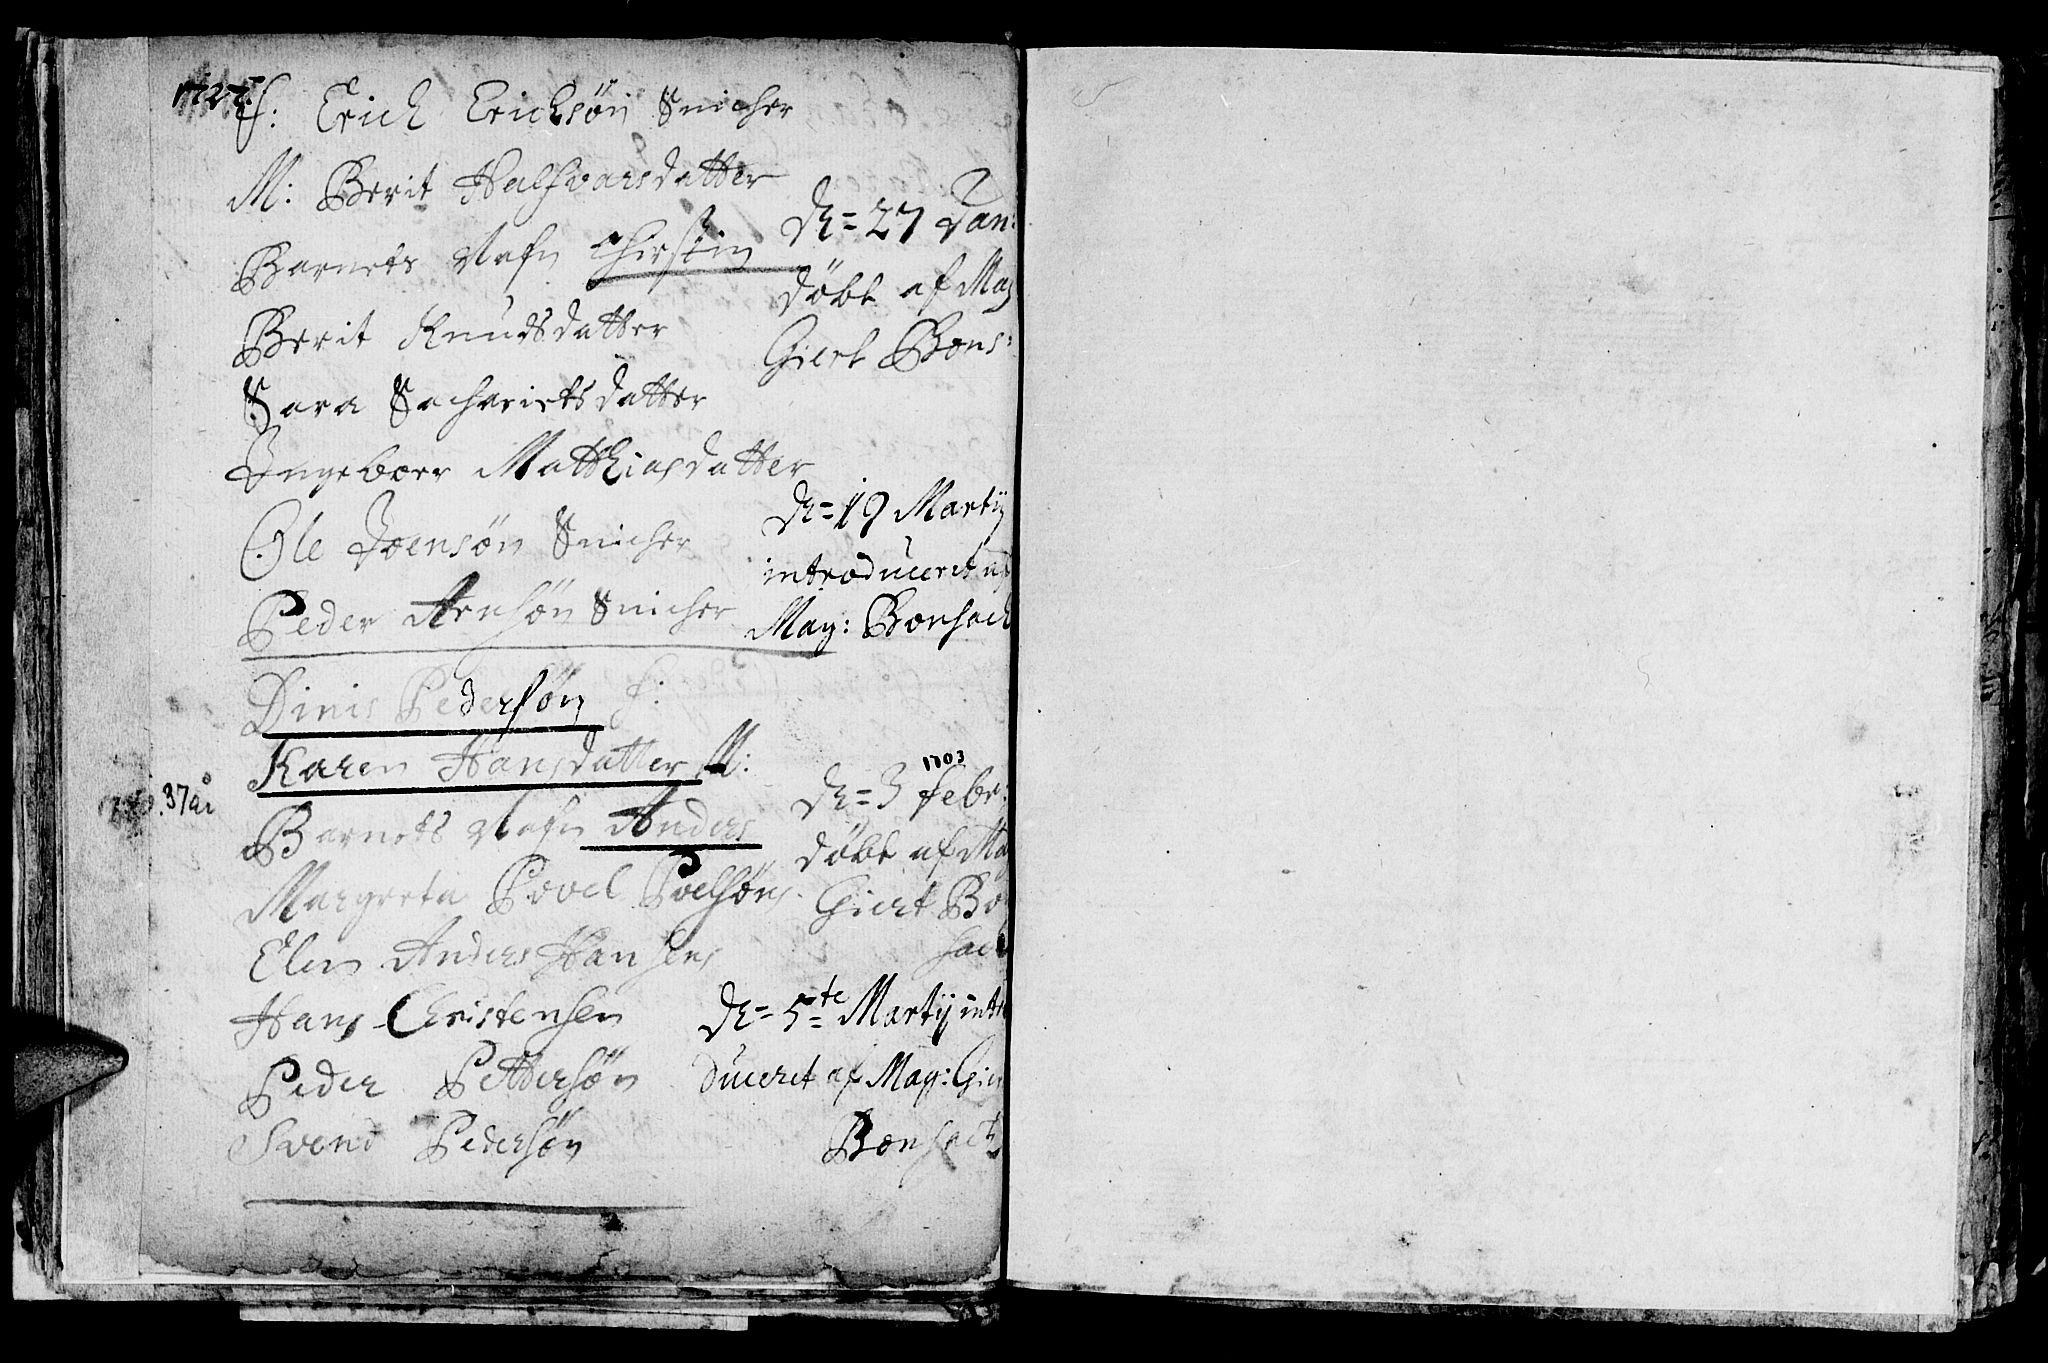 F: Erich Erichsøn Snicher
M: Berit Halfvarsdatter
Barnets Nafn Chirstin
Berit Knudsdatter
Sara Sacharietsdatter
Ingeboer Matthiasdatter
Ole Joensøn Snicher
Peder Arnsøn Snicher
D= 27 Jan:
döbt af Mag
Giert Bons:
D= 19 Martij
introduceret af
Mag: Bonsach
Dinis Pedersøn F:
Karen Hansdatter M:
37 år
Barnets Nafn Anders
Margreta Povel Poelsøns
Elen Anders Hansens
Hans Christensen
Peder Pettersøn
Svend Pedersøn
1703
D= 3 Febr:
döbt af Mag
Giert Bon
sach
D= 5te Martij intro
duceret af Mag: Gier
Bonsach